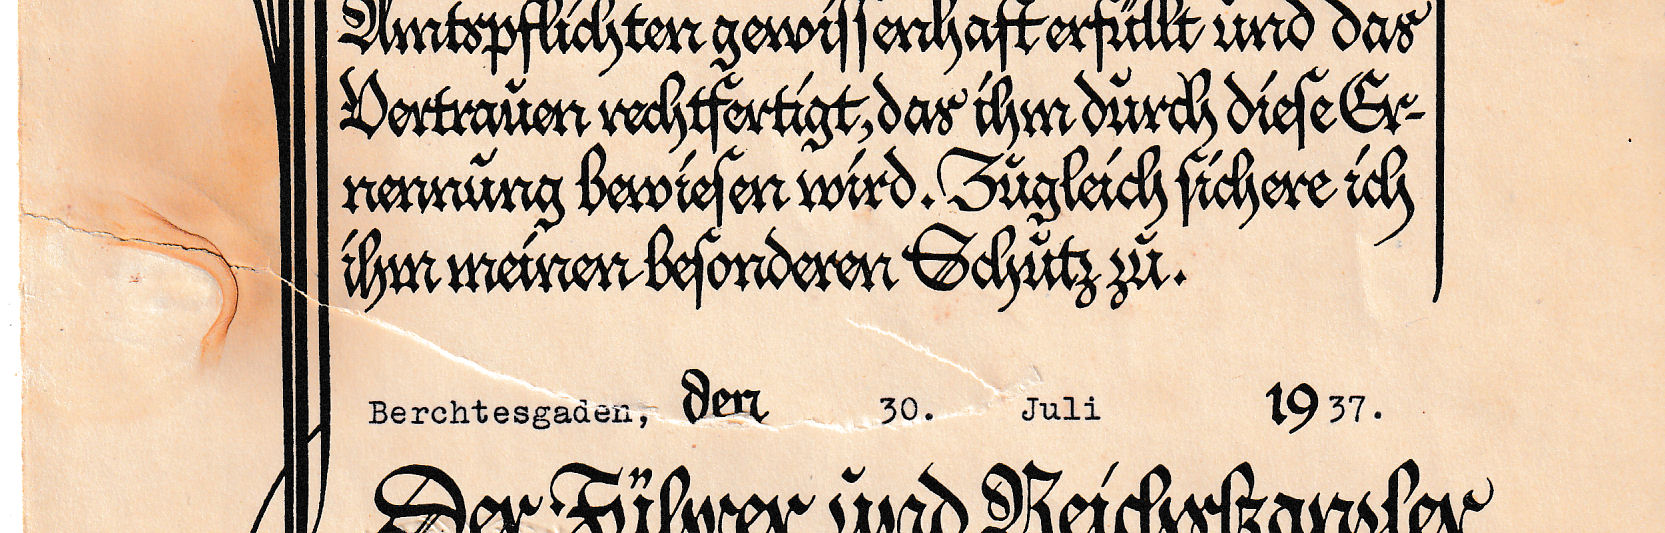 Amtspflichten gewissenhaft erfüllt und das
Vertrauen rechtfertigt, das ihm durch diese Er-
nennung bewiesen wird. Zugleich sichere ich
ihm meinen besonderen Schutz zu.
Berchtesgaden, den 30. Juli 1937.
Der Führer und Reichskanzler